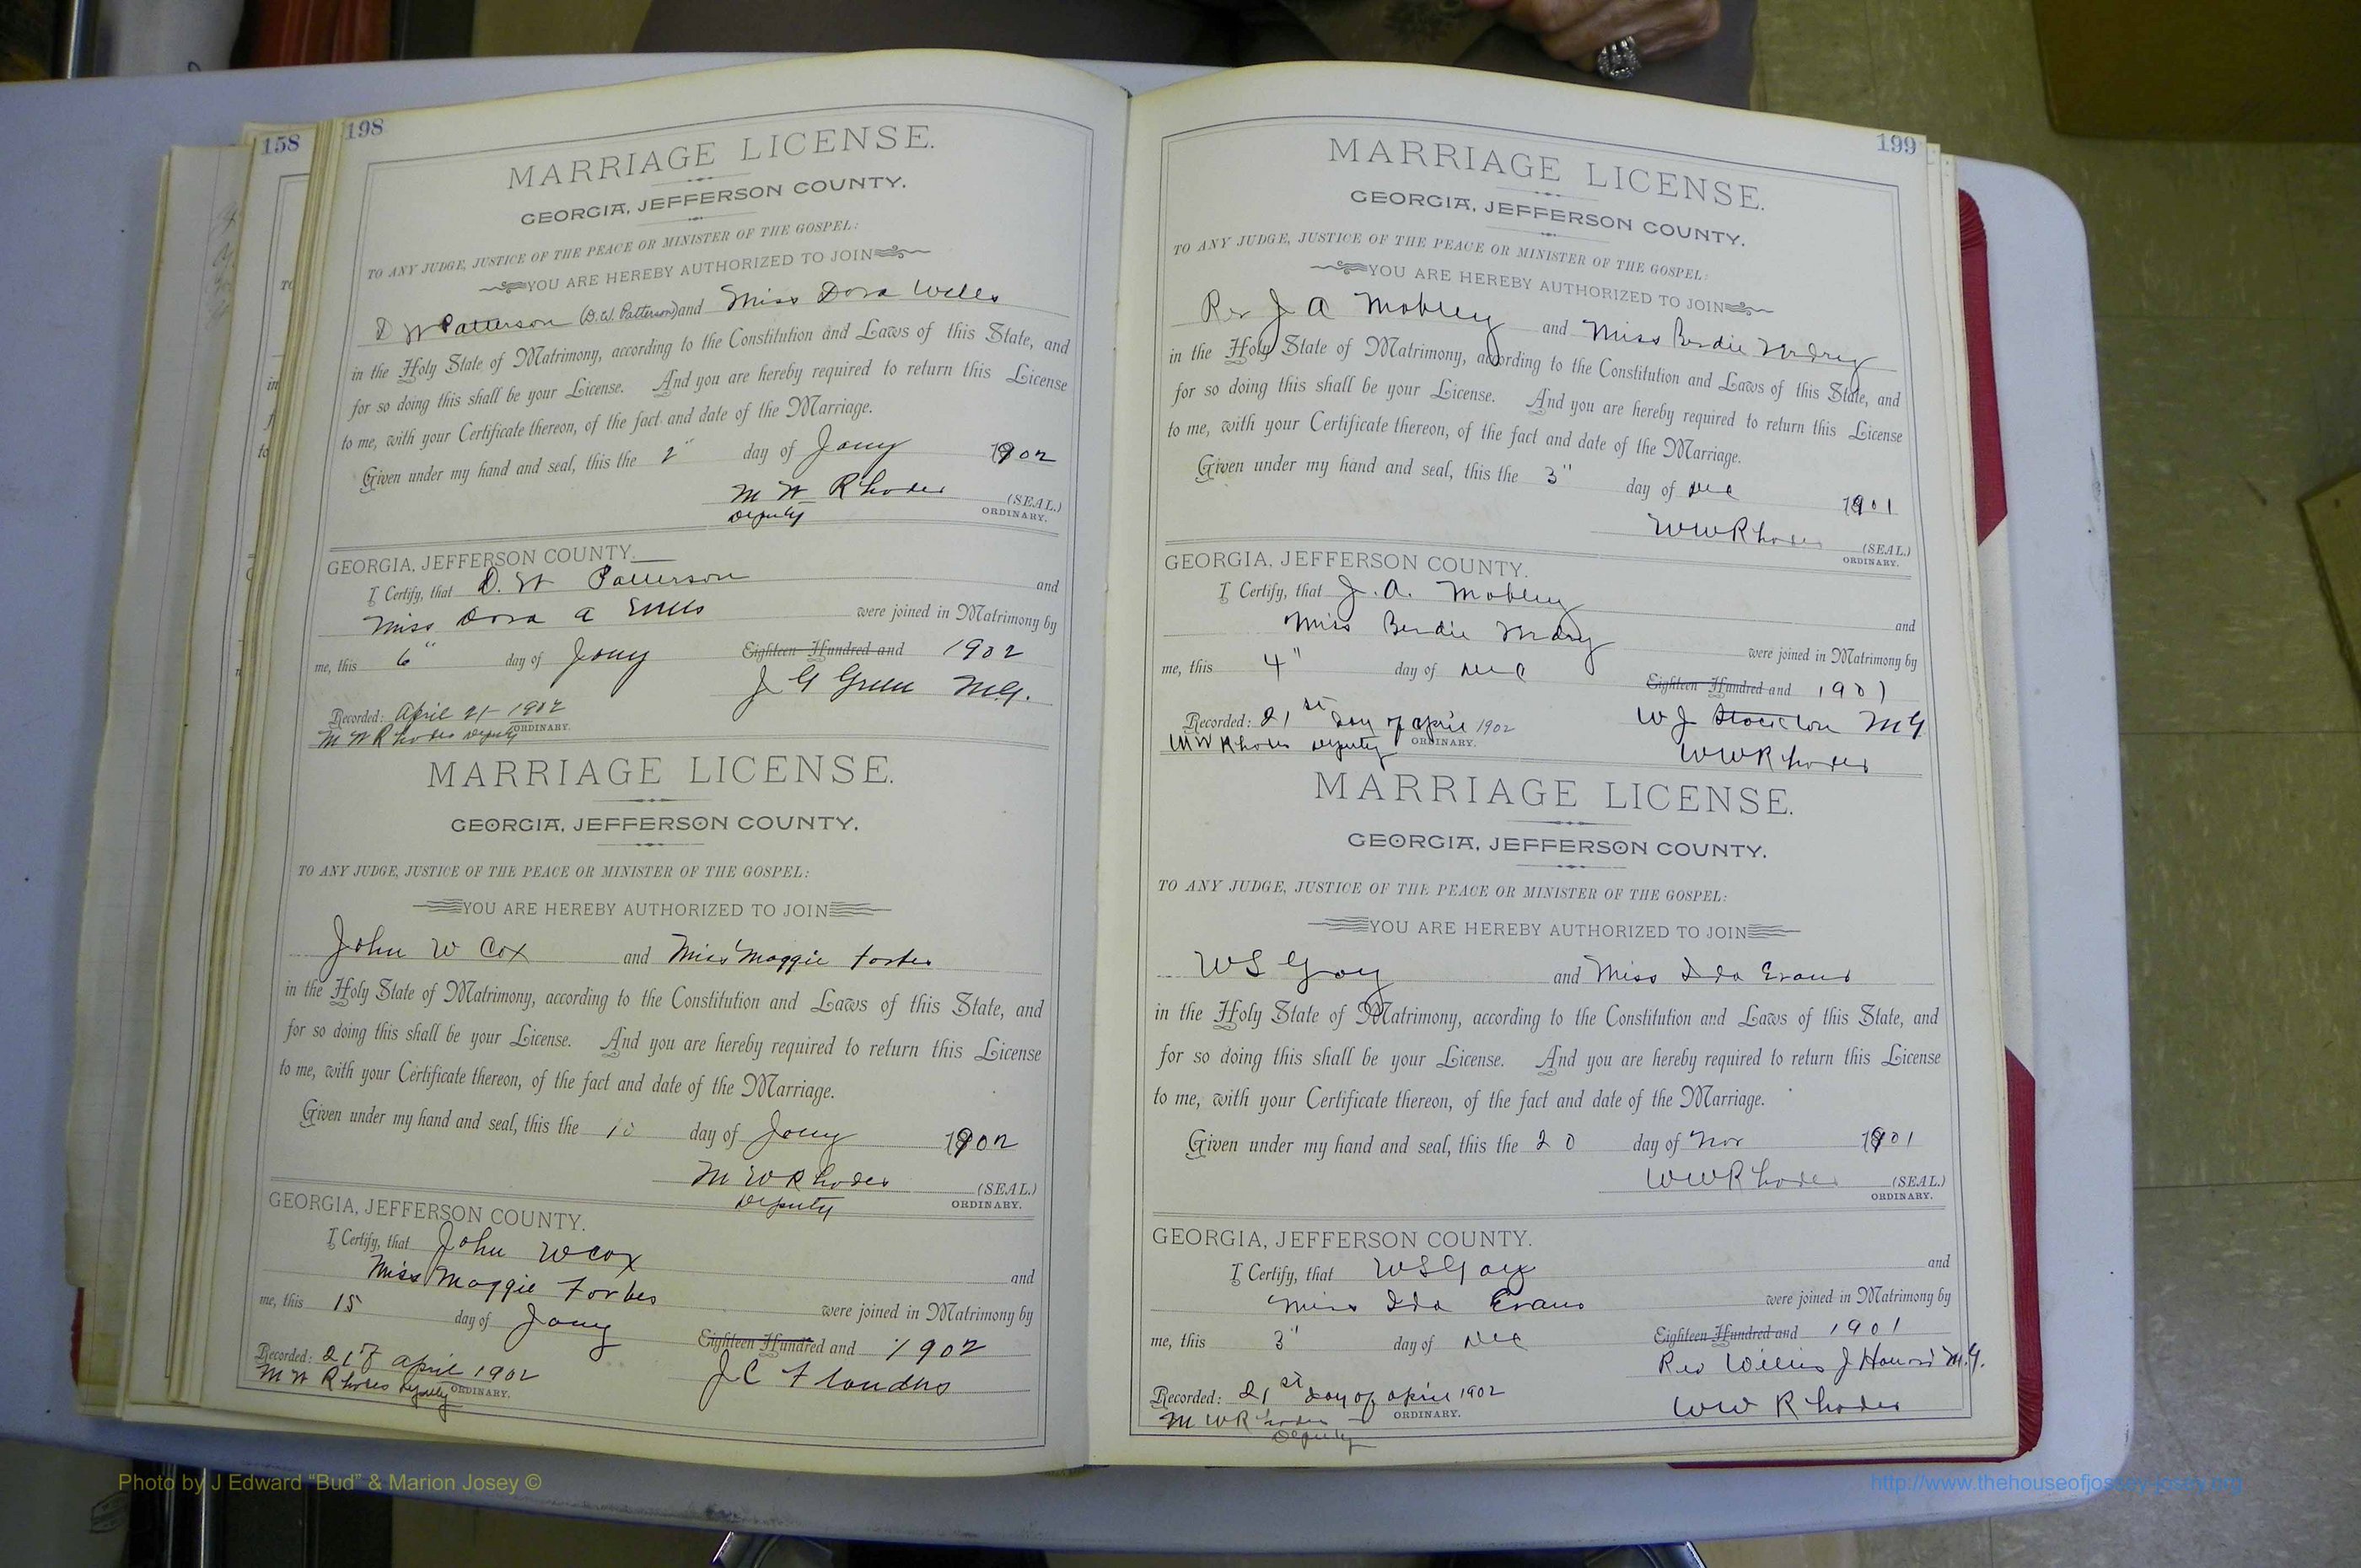 158
198
MARRIAGE LICENSE.
GEORGIA, JEFFERSON COUNTY.
TO ANY JUDGE, JUSTICE OF THE PEACE OR MINISTER OF THE GOSPEL:
YOU ARE HEREBY AUTHORIZED TO JOIN
D W Patterson (D.W. Patterson) and Miss Dora Wells
in the Holy State of Matrimony, according to the Constitution and Laws of this State, and
for so doing this shall be your License. And you are hereby required to return this License
to me, with your Certificate thereon, of the fact and date of the Marriage.
Given under my hand and seal, this the 2" day of Jany 1902
M W Rhodes (SEAL.)
Deputy ORDINARY.
GEORGIA, JEFFERSON COUNTY.
I Certify, that D. W Patterson and
Miss Dora A Wells were joined in Matrimony by
me, this 6" day of Jany Eighteen Hundred and 1902
J G Green M.G.
Recorded: April 21 1902
M W Rhodes Deputy ORDINARY.
MARRIAGE LICENSE.
GEORGIA, JEFFERSON COUNTY.
TO ANY JUDGE, JUSTICE OF THE PEACE OR MINISTER OF THE GOSPEL:
YOU ARE HEREBY AUTHORIZED TO JOIN
John W Cox and Miss Maggie Forbes
in the Holy State of Matrimony, according to the Constitution and Laws of this State, and
for so doing this shall be your License. And you are hereby required to return this License
to me, with your Certificate thereon, of the fact and date of the Marriage.
Given under my hand and seal, this the 10 day of Jany 1902
M W Rhodes (SEAL.)
Deputy ORDINARY.
GEORGIA, JEFFERSON COUNTY.
I Certify, that John W Cox
Miss Maggie Forbes and
me, this 15 day of Jany were joined in Matrimony by
Eighteen Hundred and 1902
Recorded: 21 April 1902 J C Flanders
M W Rhodes Deputy ORDINARY.
199
MARRIAGE LICENSE.
GEORGIA, JEFFERSON COUNTY.
TO ANY JUDGE, JUSTICE OF THE PEACE OR MINISTER OF THE GOSPEL:
YOU ARE HEREBY AUTHORIZED TO JOIN
Rev J A Mobley and Miss Berdie
in the Holy State of Matrimony, according to the Constitution and Laws of this State, and
for so doing this shall be your License. And you are hereby required to return this License
to me, with your Certificate thereon, of the fact and date of the Marriage.
Given under my hand and seal, this the 3" day of Dec 1901
W W Rhodes (SEAL.)
ORDINARY.
GEORGIA, JEFFERSON COUNTY.
I Certify, that J. A. Mobley and
Miss Berdie were joined in Matrimony by
me, this 4" day of Dec Eighteen Hundred and 1901
W J Stockton M G
Recorded: 21st day of April 1902
M W Rhodes Deputy ORDINARY. W W Rhodes
MARRIAGE LICENSE.
GEORGIA, JEFFERSON COUNTY.
TO ANY JUDGE, JUSTICE OF THE PEACE OR MINISTER OF THE GOSPEL:
YOU ARE HEREBY AUTHORIZED TO JOIN
W S Gay and Miss Ida Evans
in the Holy State of Matrimony, according to the Constitution and Laws of this State, and
for so doing this shall be your License. And you are hereby required to return this License
to me, with your Certificate thereon, of the fact and date of the Marriage.
Given under my hand and seal, this the 20 day of Nov 1901
W W Rhodes (SEAL.)
ORDINARY.
GEORGIA, JEFFERSON COUNTY.
I Certify, that W S Gay and
Miss Ida Evans were joined in Matrimony by
me, this 3" day of Dec Eighteen Hundred and 1901
Rev Willis J Howard M.G.
Recorded: 21st day of April 1902
M W Rhodes ORDINARY. W W Rhodes
Deputy
Photo by J Edward “Bud” & Marion Josey ©
http://www.thehouseofjossey-josey.org